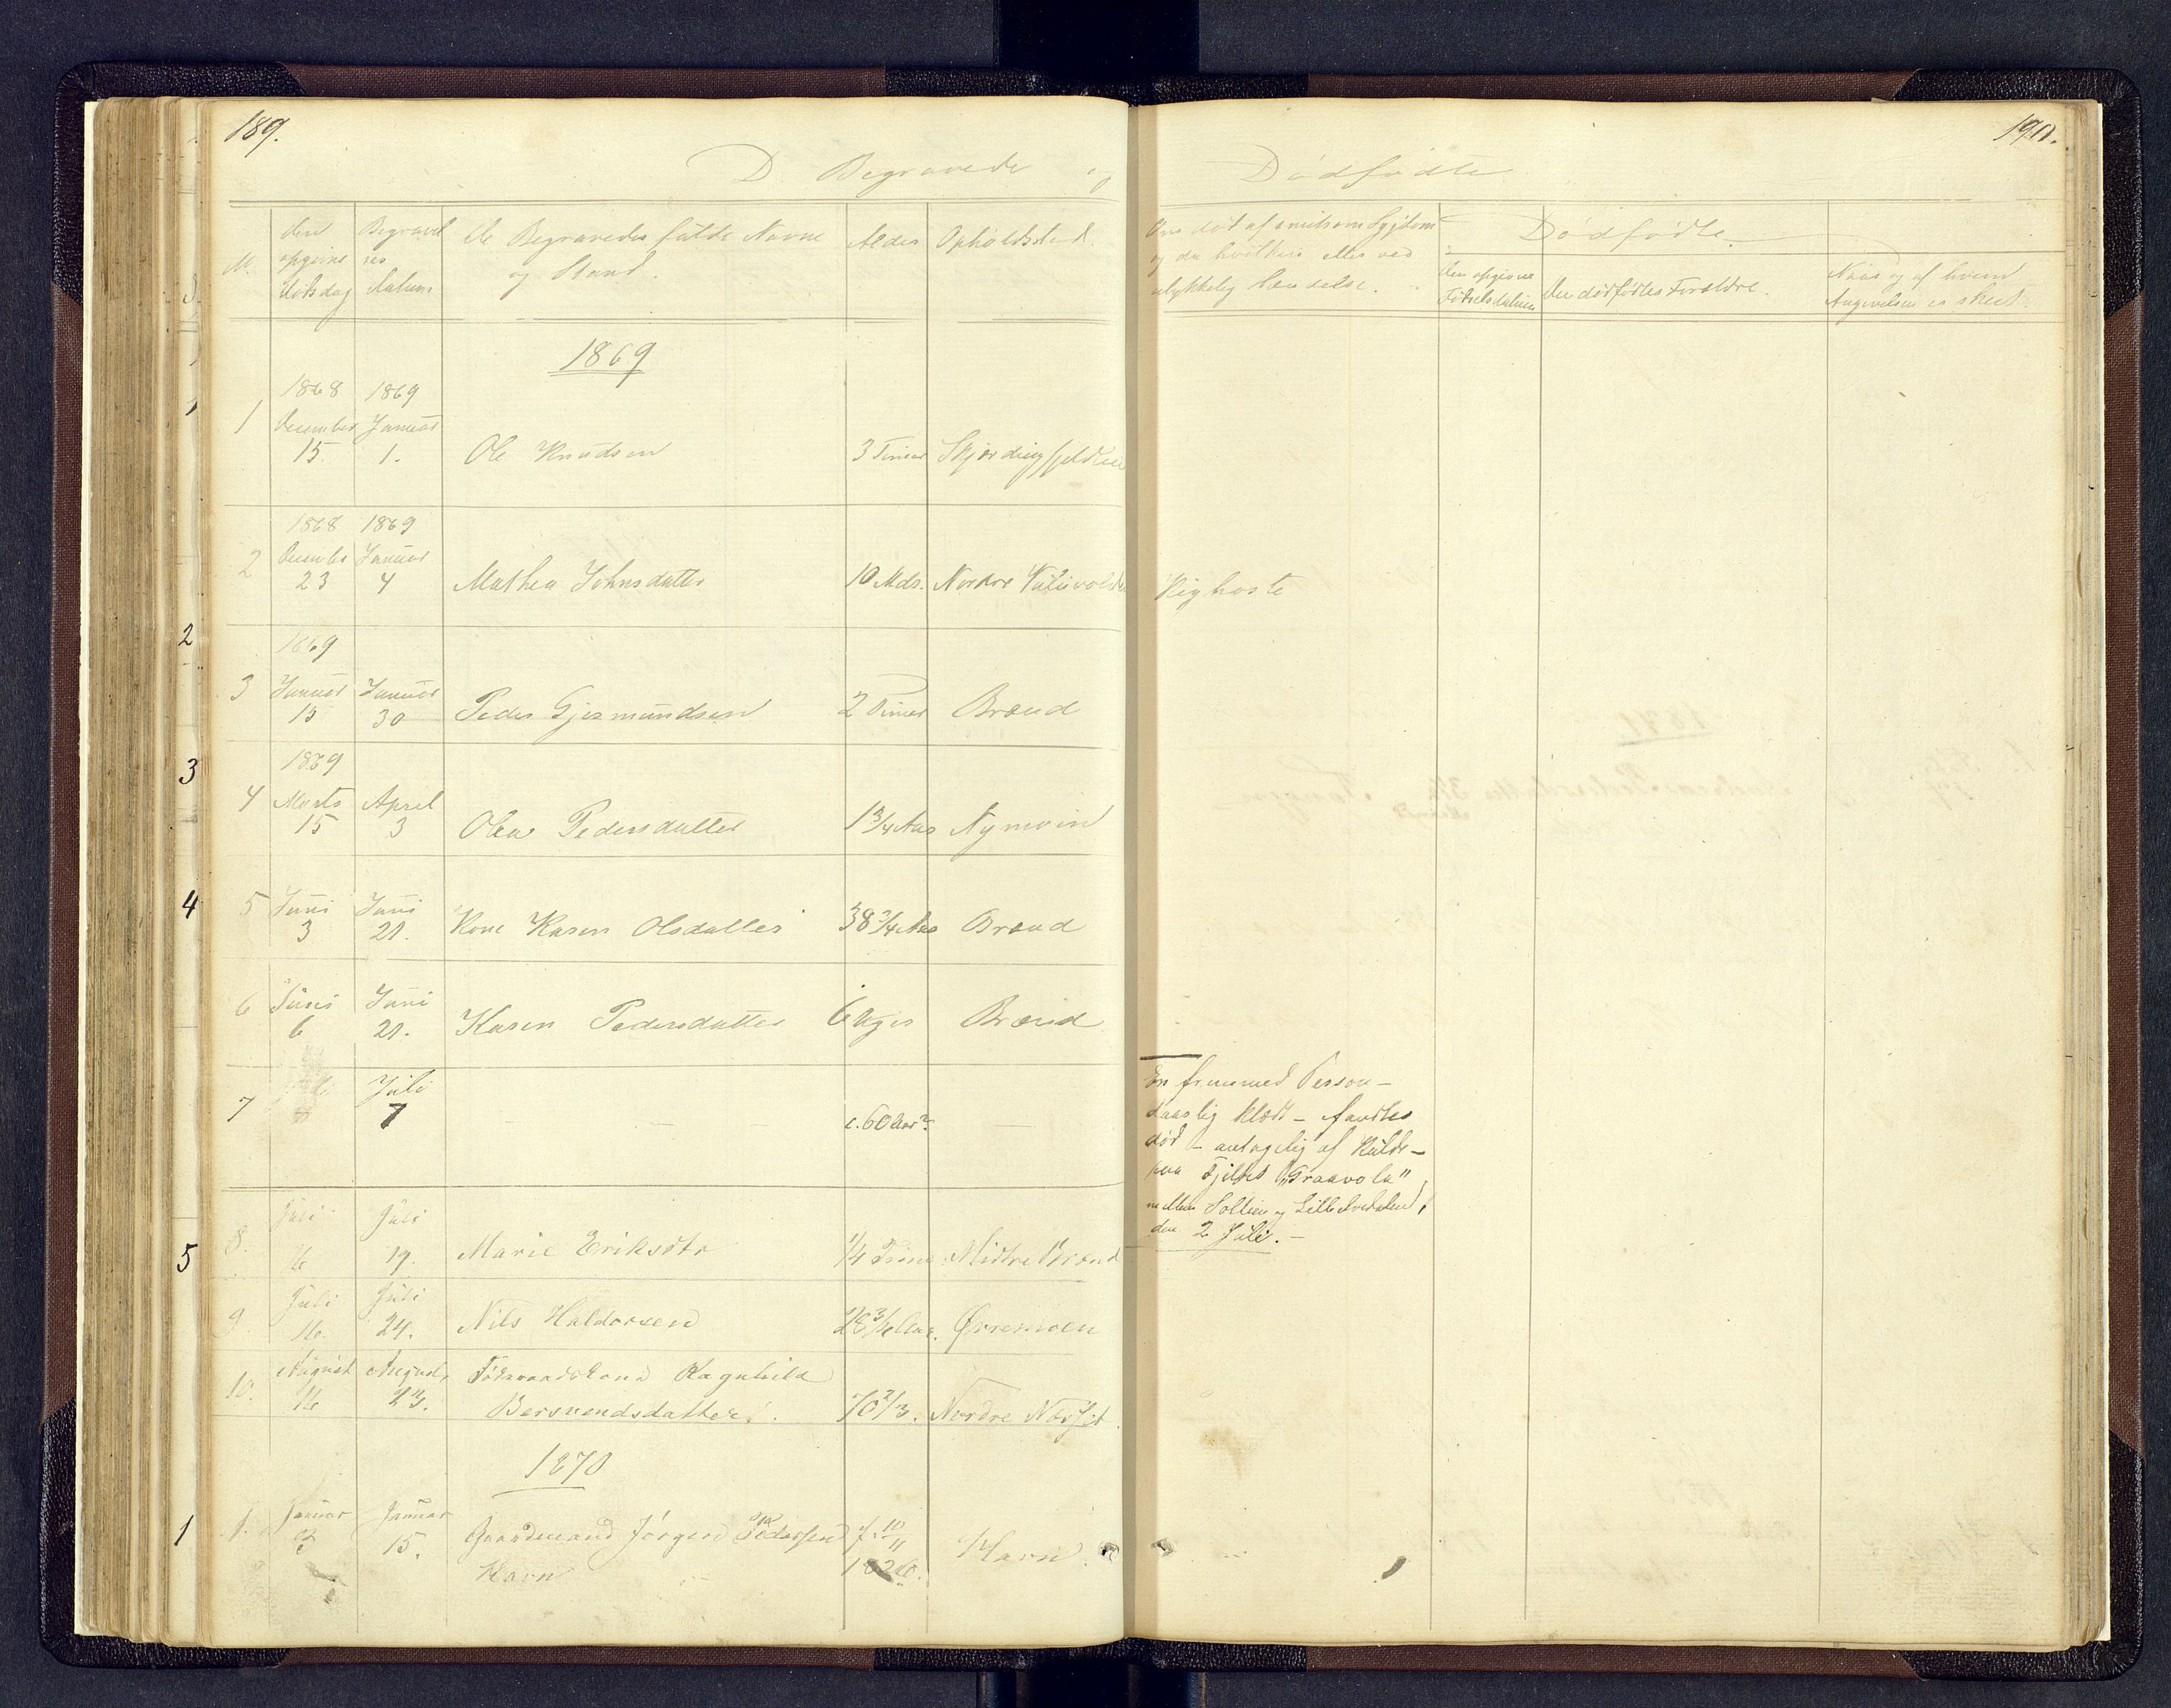 189.
190.
D Begravede og
Dødfødte
N.
den opgivne Dødsdag
Begravelses Datum
De Begravedes fulde Navne og Stand.
Alder
Opholdssted.
Om død af smitsom Sygdom og da hvilken eller ved ulykkelig Hændelse.
Dødfødte
Den opgivne Fødselsdatum
Den dødfødtes Forældre.
Naar og af hvem Angivelsen er skeet.
1869
1868 1869
1 December Januar
15 1. Ole Knudsen 3 Timer
1868 1869
2 December Januar
23 4 Mathea Johnsdatter 10 Mdr. Nordre Kighoste
1869
3 Januar Januar
15 30 Peder Gjermundsen 2 Timer Brænd
1869
4 Marts April
15 3 Olea Pedersdatter 1 3/4 Aar Nymoen
5 Juni Juni
3 21. Kone Karen Olsdatter 38 3/4 Aar Brænd
6 Juni Juni
6 21. Karen Pedersdatter 6 Uger Brænd
7 Juli
7 — — — c. 60 Aar? —
En fremmed Person –
daarlig klædt – fandtes
død – antagelig af Kulde –
paa Fjeldet "Graavola"
mellem Sollien og Lille Elvedalen,
den 2 Juli. –
8. Juli Juli
16 19. Marie Eriksdtr 1/4 Time Midtre Brænd
9 Juli Juli
16. 24. Nils Haldorsen Øvremoen
10. August August
16 23. Føderaadskone Ragnhild
Bersvendsdatter. 70 2/3. Nordre
1870
1. Januar Januar
3 15. Gaardmand Jørgen Pedersen f. 10/11
Harn Harn
2
3
4
5
1